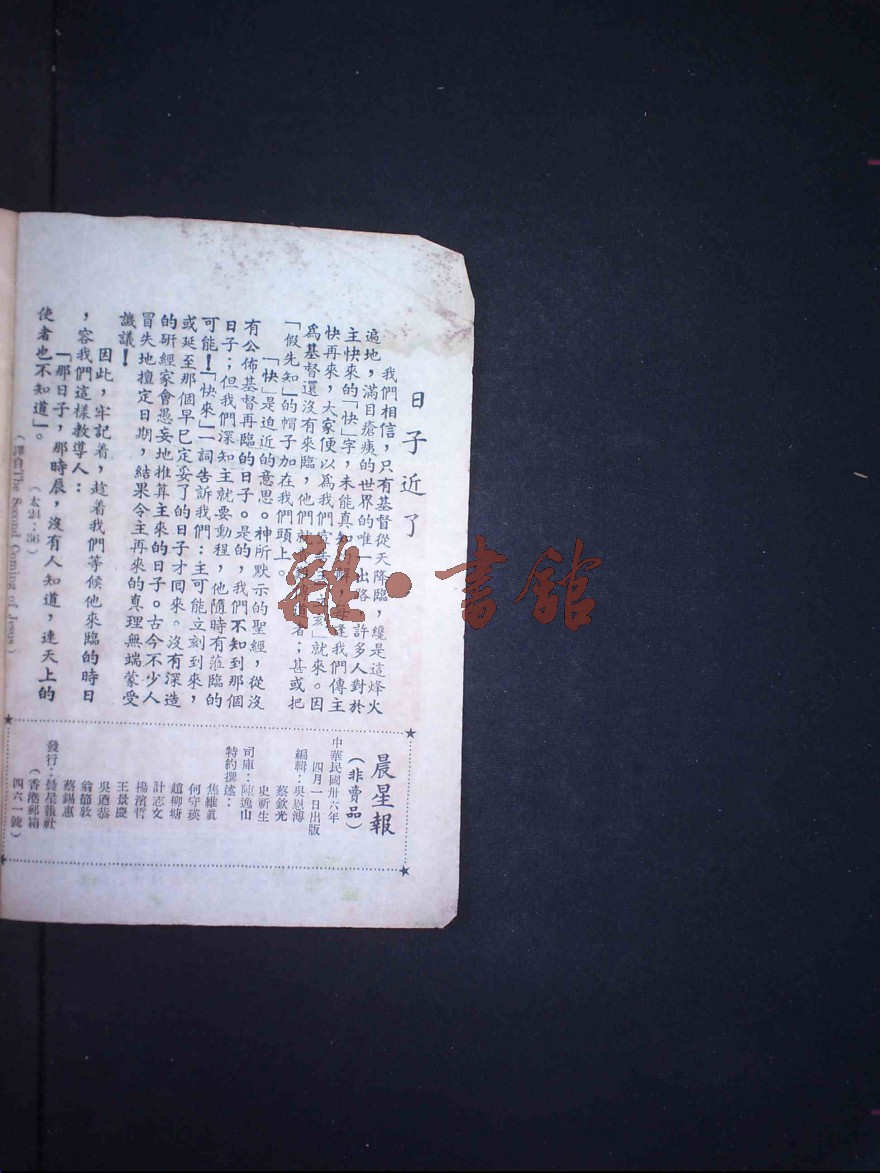 日子近了
我們相信，只有基督從天降臨，纔是這烽火
遍地，滿目瘡痍的世界的唯一出路。許多人對於
主快來的「快」字，未能真知
逢我們傳主
快再來，大家便以為我們
就來。因
為基督還沒有來臨，他們就
者；甚或把
「假先知」的帽子加在我們頭上。
「快」是迫近的意思。神所默示的聖經，從沒
有公佈基督再臨的日子。是的，我們不知到那個
日子；但我們深知主就要動程，他隨時有蒞臨的
可能！「快來」一詞告訴我們：主可能立刻到來，
或延至那個早已定妥了的日子才囘來。沒有深造
的研經家會愚妄地推算主來的日子。古今不少人
冒失地擅定日期，結果令主再來的真理無端蒙受
譏議！
因此，牢記着，趁着我們等候他來臨的時日
，容我們這樣教導人：
「那日子，那時辰，沒有人知道，連天上的
使者也不知道」。
（太24：36）
（譯自The Second Coming of Jesus）
晨星報
（非賣品）
中華民國卅六年
四月一日出版
編輯：吳恩溥
蔡欽光
史祈生
司庫：陳逸山
特約撰述：
焦維眞
何守瑛
趙柳塘
計志文
楊濱哲
王景慶
吳迺恭
翁節敦
蔡錫惠
發行：晨星報社
（香港郵箱
四六一號）
雜·書館